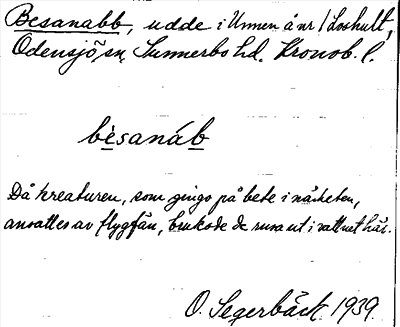 Besanabb, udde i Unnen å nr 1 Loshult,
Odensjö sn, Sunnerbo hd. Kronob. l.
bèsanáb
Då kreaturen, som gingo på bete i närheten,
ansattes av flygfän, brukade de rusa ut i vattnet här.
O. Segerbäck 1939.